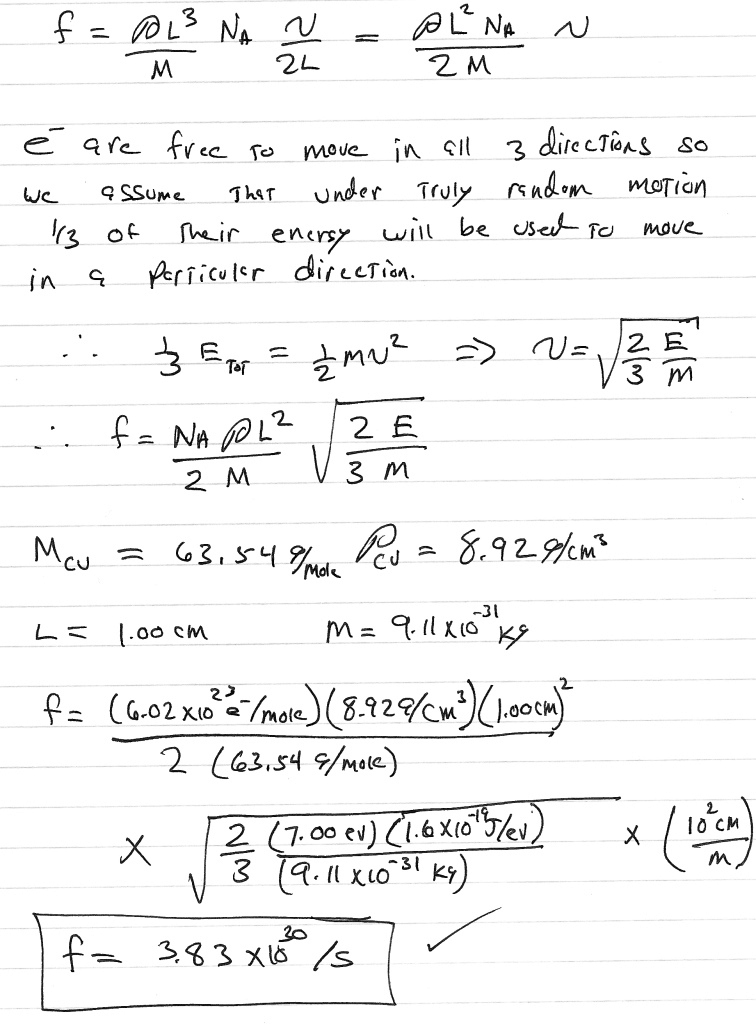 f = ρL³/M N_A v/2L = ρL² N_A/2M v
e⁻ are free to move in all 3 directions so
we assume that under truly random motion
1/3 of their energy will be used to move
in a particular direction.
∴ 1/3 E_TOT = 1/2 mv² => v = √(2/3 E/m)
∴ f = N_A ρL²/2M √(2E/3m)
M_cu = 63.54 g/mole ρ_cu = 8.92 g/cm³
L = 1.00 cm m = 9.11 x10⁻³¹ kg
f = (6.02 x10²³ e⁻/mole)(8.92 g/cm³)(1.00cm)²/2 (63.54 g/mole)
x √(2/3 (7.00 ev)(1.6 x10⁻¹⁹ J/ev)/(9.11 x10⁻³¹ kg)) x (10² cm/m)
f = 3.83 x10³⁰ /s ✓